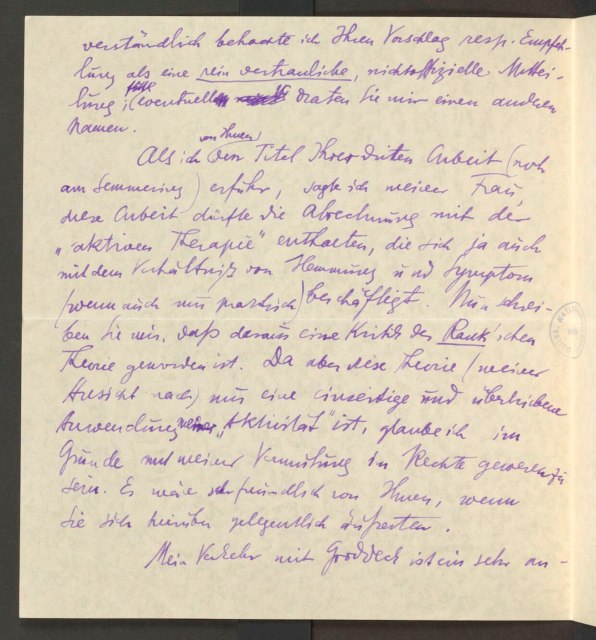 verständlich betrachte ich Ihren Vorschlag resp. Empfeh-
lung als eine rein vertrauliche, nichtoffizielle Mittei-
lung; eventuell raten Sie mir einen anderen
Namen.
Als ich von Ihnen den Titel Ihrer dritten Arbeit (noch
am Semmering) erfuhr, sagte ich meiner Frau,
diese Arbeit dürfte die Abrechnung mit der
„aktiven Therapie" enthalten, die sich ja auch
mit dem Verhältniß von Hemmung und Symptom
(wenn auch nur praktisch) beschäftigt. Nun schrei-
ben Sie mir, daß daraus eine Kritik der Rank'schen
Theorie geworden ist. Da aber diese Theorie (meiner
Ansicht nach) nur eine einseitige und übertriebene
Anwendung meiner „Aktivität" ist, glaube ich im
Grunde mit meiner Vermutung im Rechte gewesen zu
sein. Es wäre sehr freundlich von Ihnen, wenn
Sie sich hierüber gelegentlich äußerten.
Mein Verkehr mit Groddeck ist ein sehr an-